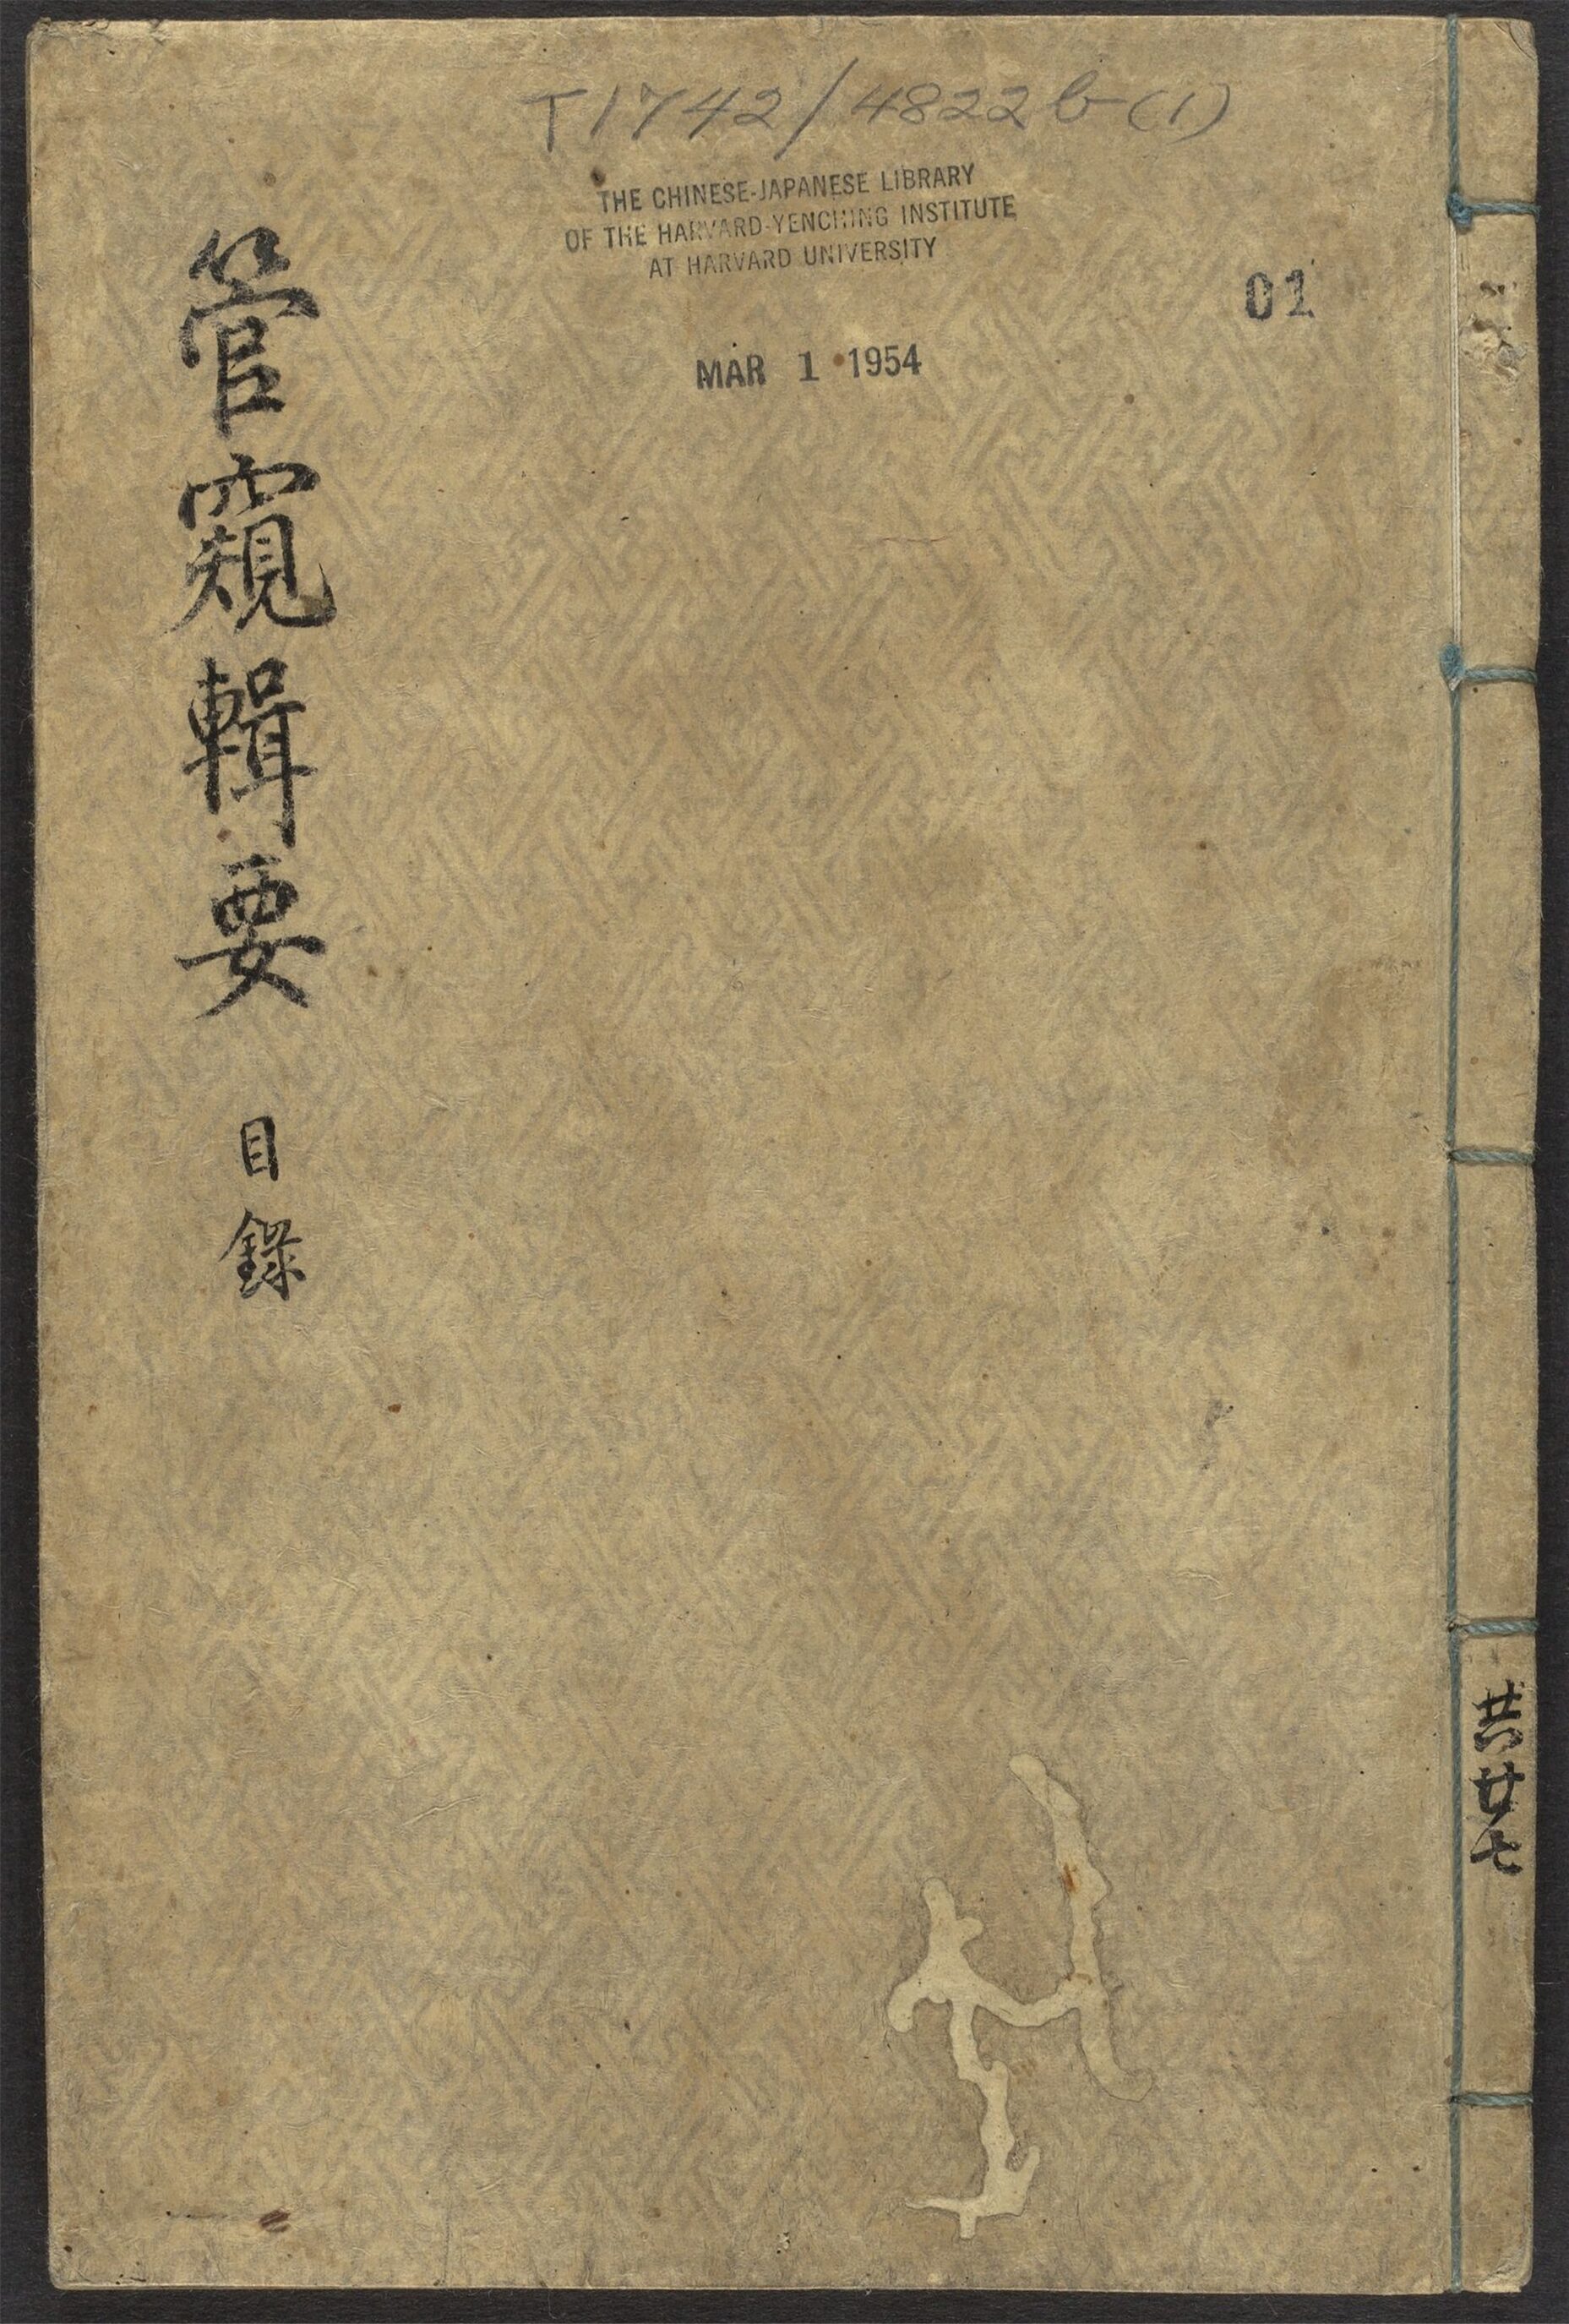 T1742/4822b(1)
THE CHINESE-JAPANESE LIBRARY
OF THE HARVARD-YENCHING INSTITUTE
AT HARVARD UNIVERSITY
01
MAR 1 1954
管窺輯要 目錄
共廿七